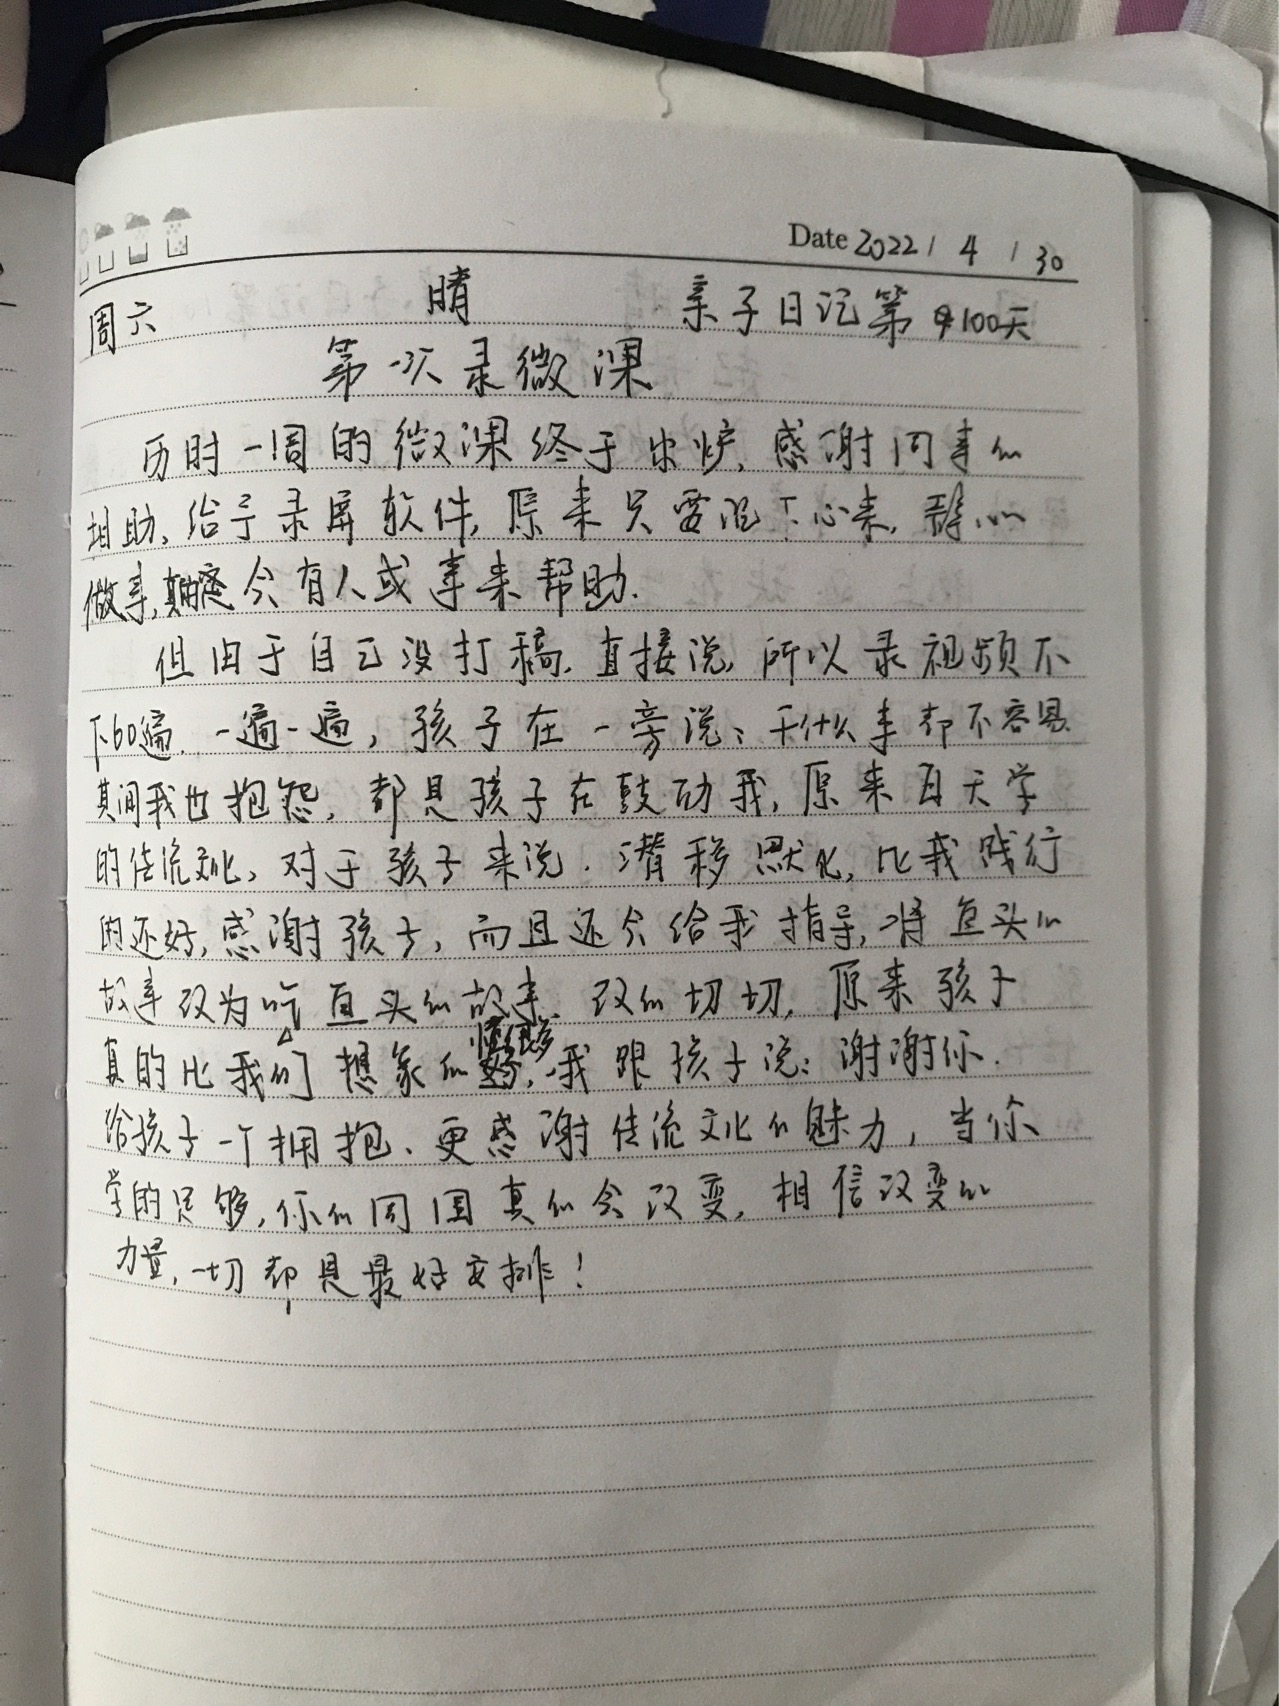 Date 2022 / 4 / 30
周六 晴 亲子日记第100天
第一次录微课
历时一周的微课终于出炉,感谢同事的
相助,给予录屏软件,原来只需沉下心来,静心
做事,真的会有人或事来帮助.
但由于自己没打稿.直接说,所以录视频不
下60遍.一遍一遍,孩子在一旁说:干什么事都不容易
其间我也抱怨,都是孩子在鼓励我,原来每天学
的传统文化,对于孩子来说.潜移默化,比我践行
的还好,感谢孩子,而且还会给我指导,将鱼头的
故事改为吃鱼头的故事.改的切切,原来孩子
真的比我们想象的懂得多,我跟孩子说:谢谢你.
给孩子一个拥抱、更感谢传统文化的魅力,当你
学的足够,你的周围真的会改变,相信改变的
力量,一切都是最好安排!